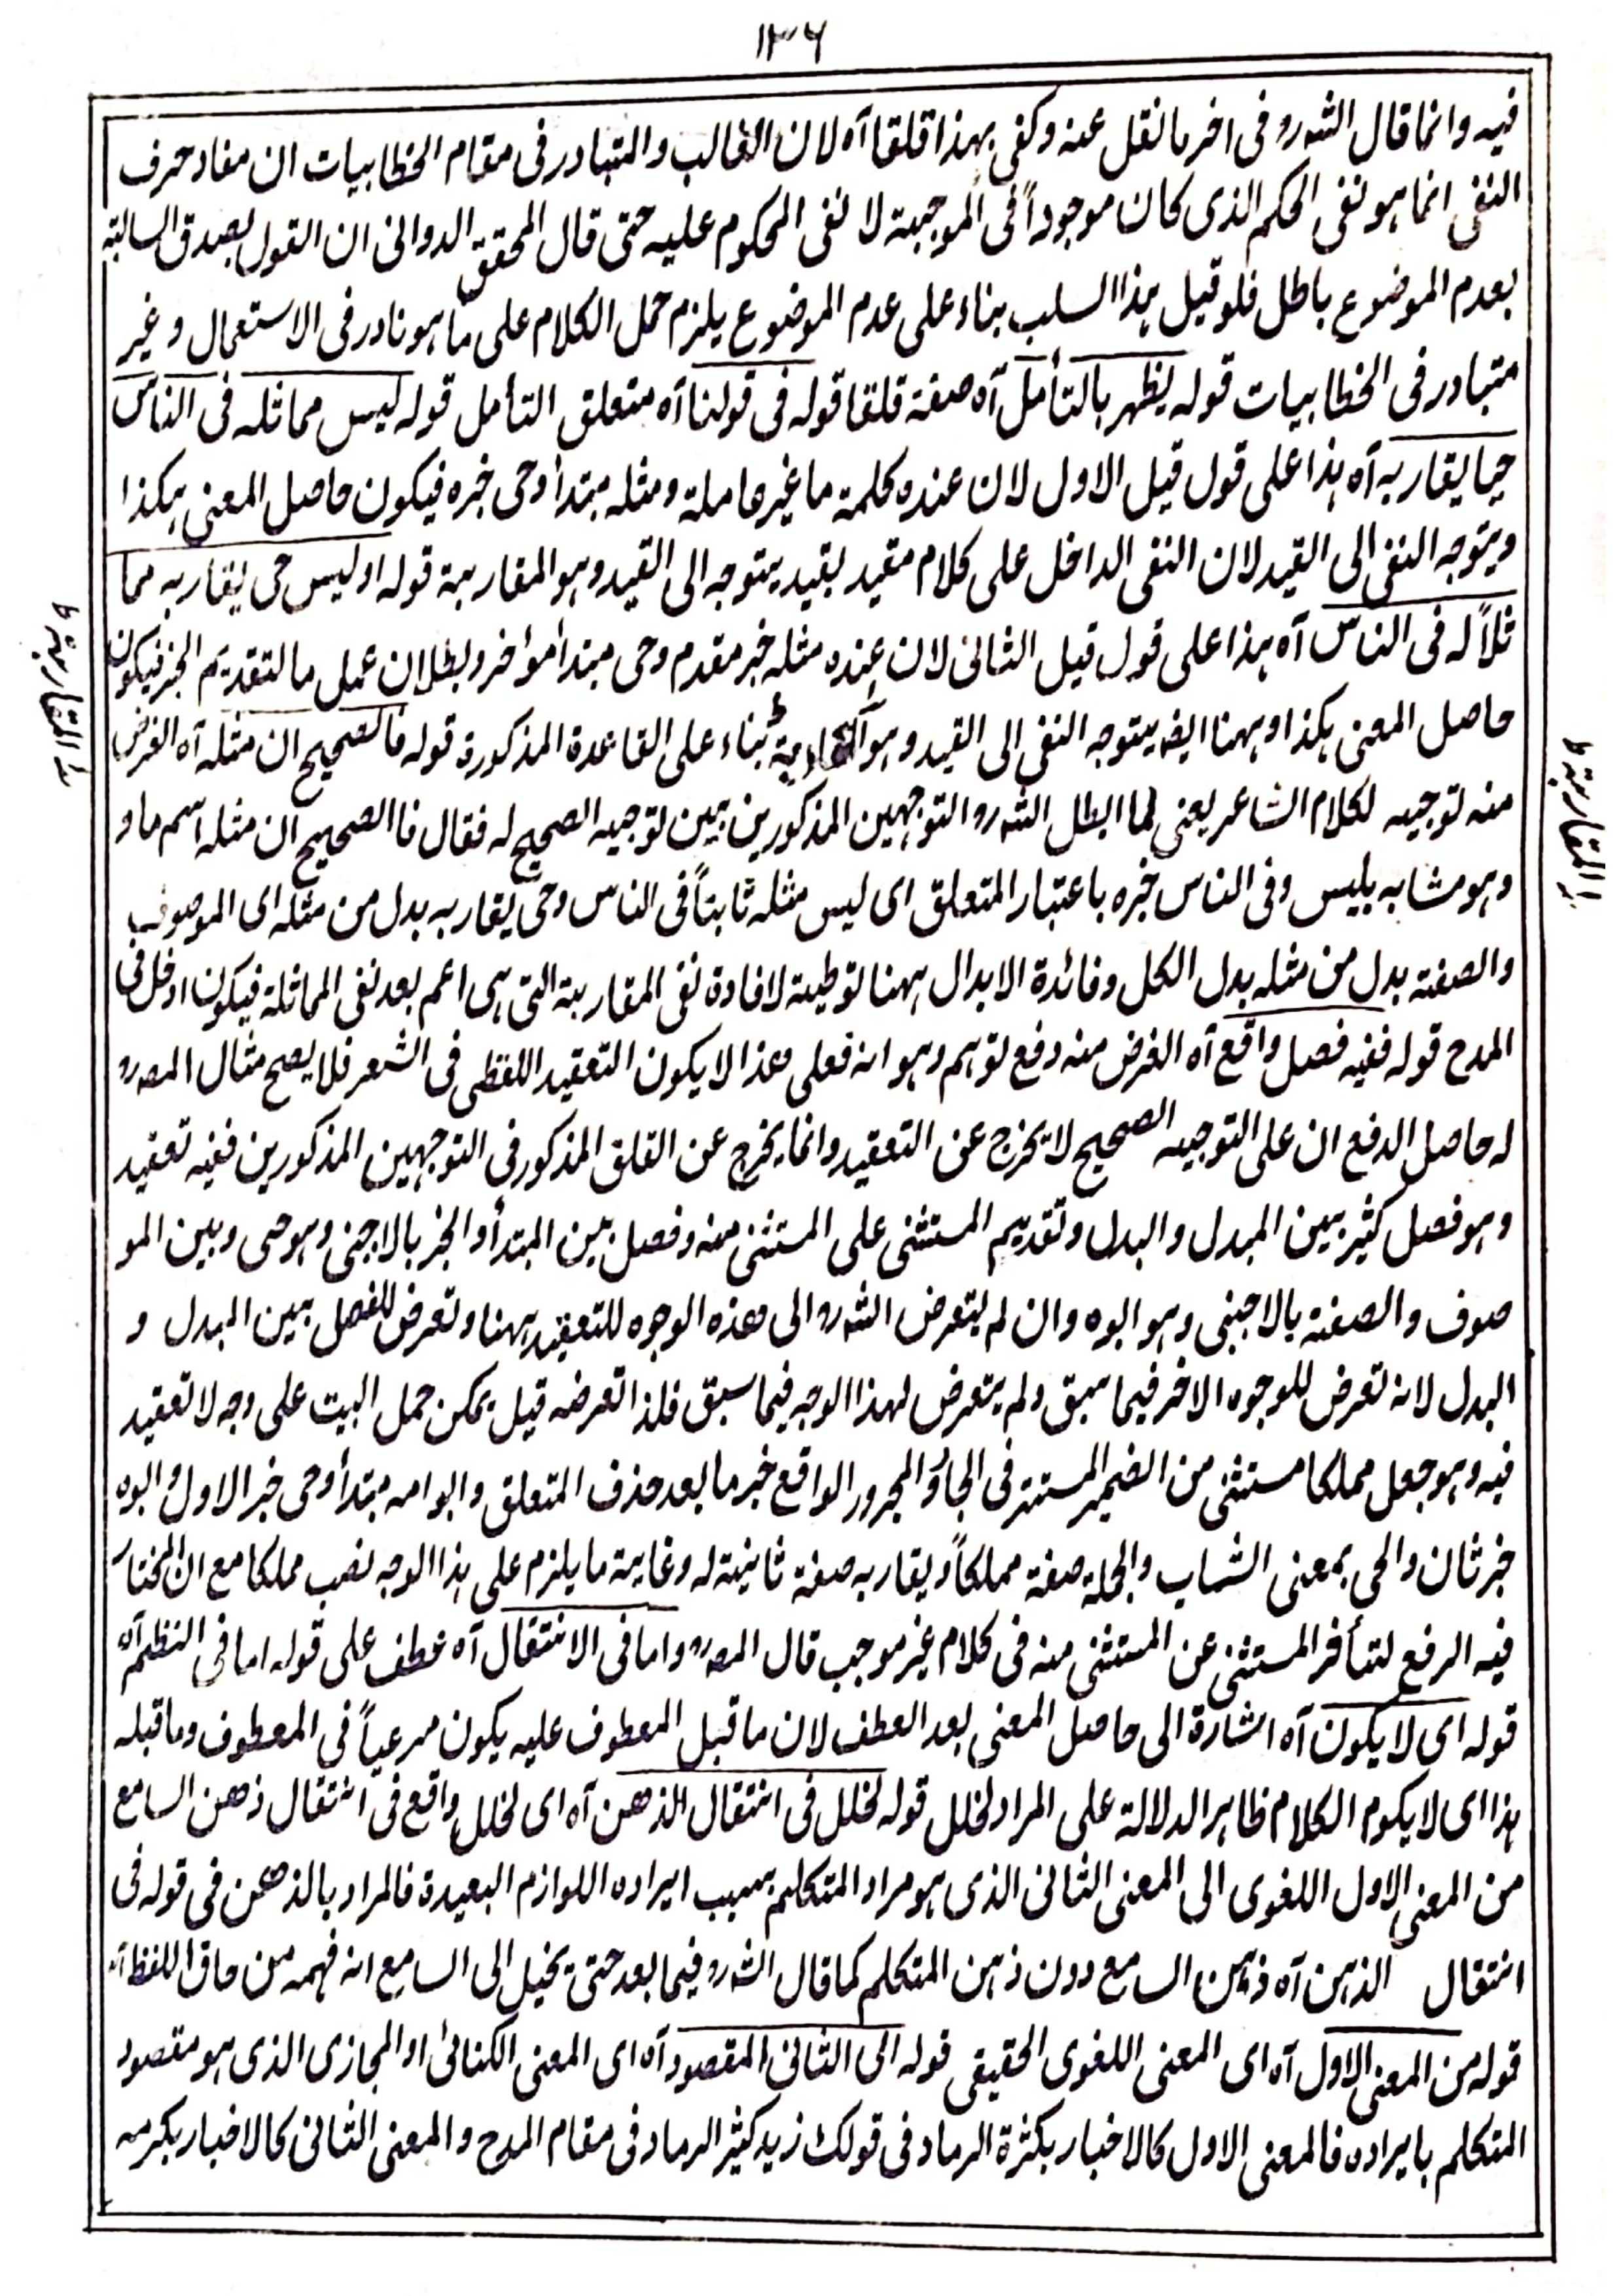 ١٣٦
فيه وانما قال الشه ره فى اخر ما نقل عنه وكفى بهذا قلقا آه لان الغالب والمتبادر فى مقام الخطابيات ان مفاد حرف
النفى انما هو نفى الحكم الذى كان موجوداً فى الموجبة لا نفى المحكوم عليه حتى قال المحقق الدوانى ان القول بصدق السالبة
بعدم الموضوع باطل فلو قيل بهذا السلب بناء على عدم الموضوع يلزم حمل الكلام على ما هو نادر فى الاستعمال وغير
متبادر فى الخطابيات قوله يظهر بالتأمل آه صفة قلقا قوله فى قولنا آه متعلق التأمل قوله ليس مماثله فى الناس
حيا يقاربه آه هذا على قول قيل الاول لان عنده كلمة ما غير عاملة ومثله مبتدأ وحى خبره فيكون حاصل المعنى هكذا
ويتوجه النفى الى القيد لان النفى الداخل على كلام مقيد بقيد يتوجه الى القيد وهو المقاربة قوله اوليس حى يقاربه مما
ثلاً له فى الناس آه هذا على قول قيل الثانى لان عنده مثله خبر مقدم وحى مبتدأ مؤخر وبطلان عمل ما لتقديم الخبر فيكون
حاصل المعنى هكذا وههنا ايضه يتوجه النفى الى القيد وهو بناء على القاعدة المذكورة قوله فالصحيح ان مثله آه الغرض
منه توجيه لكلام الشاعر يعنى لما ابطل الشه ره التوجهين المذكورين بين توجيه الصحيح له فقال فا الصحيح ان مثله اسم ما و
وهو مشابه بليس وفى الناس خبره باعتبار المتعلق اى ليس مثله ثابتاً فى الناس وحى يقاربه بدل من مثله اى الموصوف
والصفة بدل من مثله بدل الكل وفائدة الابدال ههنا توطية لافادة نفى المقاربة التى هى اعم بعد نفى المماثلة فيكون ادخل فى
المدح قوله ففيه فصل واقع آه الغرض منه دفع توهم وهو انه فعلى هذا لا يكون التعقيد اللفظى فى الشعر فلا يصح مثال المصه ره
له حاصل الدفع ان على التوجيه الصحيح لا يخرج عن التعقيد وانما يخرج عن القلق المذكور فى التوجهين المذكورين ففيه تعقيد
وهو فصل كثير بين المبدل والبدل وتقديم المستثنى على المستثنى منه وفصل بين المبتدأ والخبر بالاجنبى وهو حى وبين المو
صوف والصفة بالاجنبى وهو ابوه وان لم يتعرض الشه ره الى هذه الوجوه للتعقيد ههنا وتعرض للفصل بين المبدل و
البدل لانه تعرض للوجوه الاخر فيما سبق ولم يتعرض لهذا الوجه فيما سبق فلذا تعرضه قيل يمكن حمل البيت على وجه لا تعقيد
فيه وهو جعل مملكا مستثنى من الضمير المستتر فى الجار والمجرور الواقع خبر ما بعد حذف المتعلق وابو امه مبتدأ وحى خبر الاول وابوه
خبر ثان والحى بمعنى الشباب والجملة صفة مملكاً ويقاربه صفة ثانية له وغاية ما يلزم على هذا الوجه نصب مملكا مع ان المختار
فيه الرفع لتأخر المستثنى عن المستثنى منه فى كلام غير موجب قال المصه ره واما فى الانتقال آه عطف على قوله اما فى النظم آه
قوله اى لا يكون آه اشارة الى حاصل المعنى بعد العطف لان ما قبل المعطوف عليه يكون مرعياً فى المعطوف وما قبله
هذا اى لا يكوم الكلام ظاهر الدلالة على المراد لخلل قوله لخلل فى انتقال الذهن آه اى لخلل واقع فى انتقال ذهن السامع
من المعنى الاول اللغوى الى المعنى الثانى الذى هو مراد المتكلم بسبب ايراده اللوازم البعيدة فالمراد بالذهن فى قوله فى
انتقال الذهن آه ذهن السامع دون ذهن المتكلم كما قال الشه ره فيما بعد حتى يخيل الى السامع انه فهمه من حاق اللفظ آه
قوله من المعنى الاول آه اى المعنى اللغوى الحقيقى قوله الى الثانى المقصود آه اى المعنى الكنائى او المجازى الذى هو مقصود
المتكلم بايراده فالمعنى الاول كالاخبار بكثرة الرماد فى قولك زيد كثير الرماد فى مقام المدح والمعنى الثانى كالاخبار بكرمه